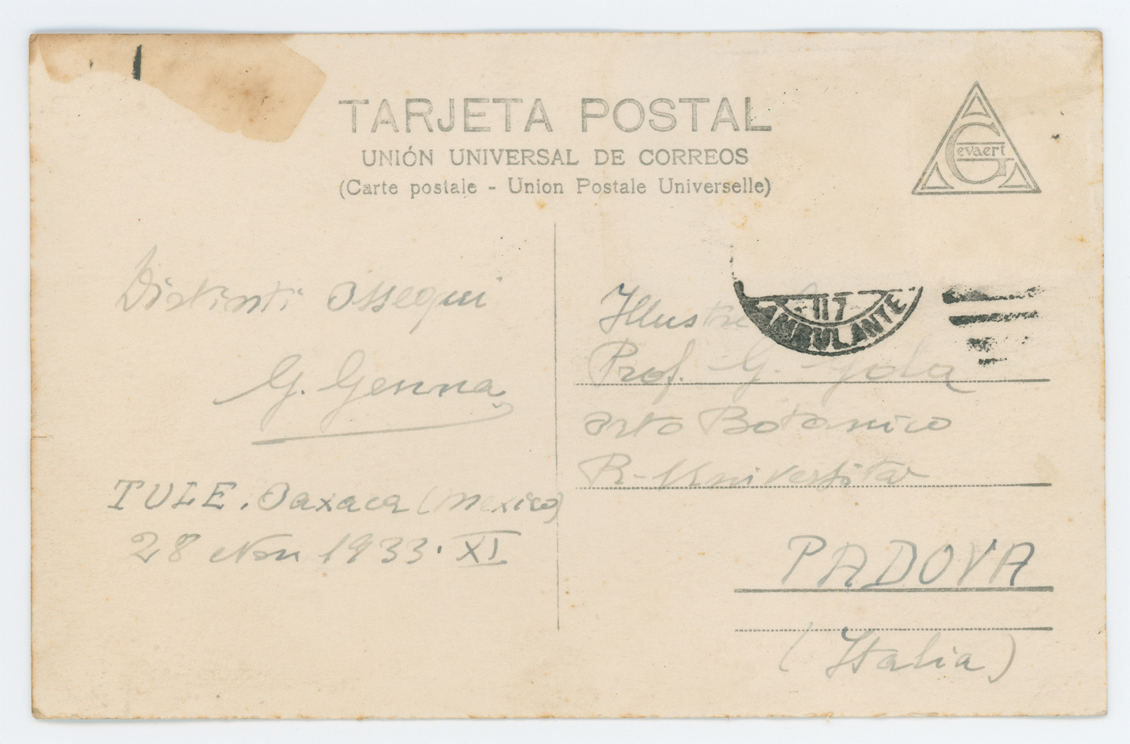 TARJETA POSTAL
UNIÓN UNIVERSAL DE CORREOS
(Carte postale - Union Postale Universelle)
Gevaert
Distinti Ossequi
G. Genna
TULE. Oaxaca (Mexico)
28 Nov 1933. XI
117
AMBULANTE
Prof. G. Gola
Orto Botanico
R. Università
PADOVA
(Italia)